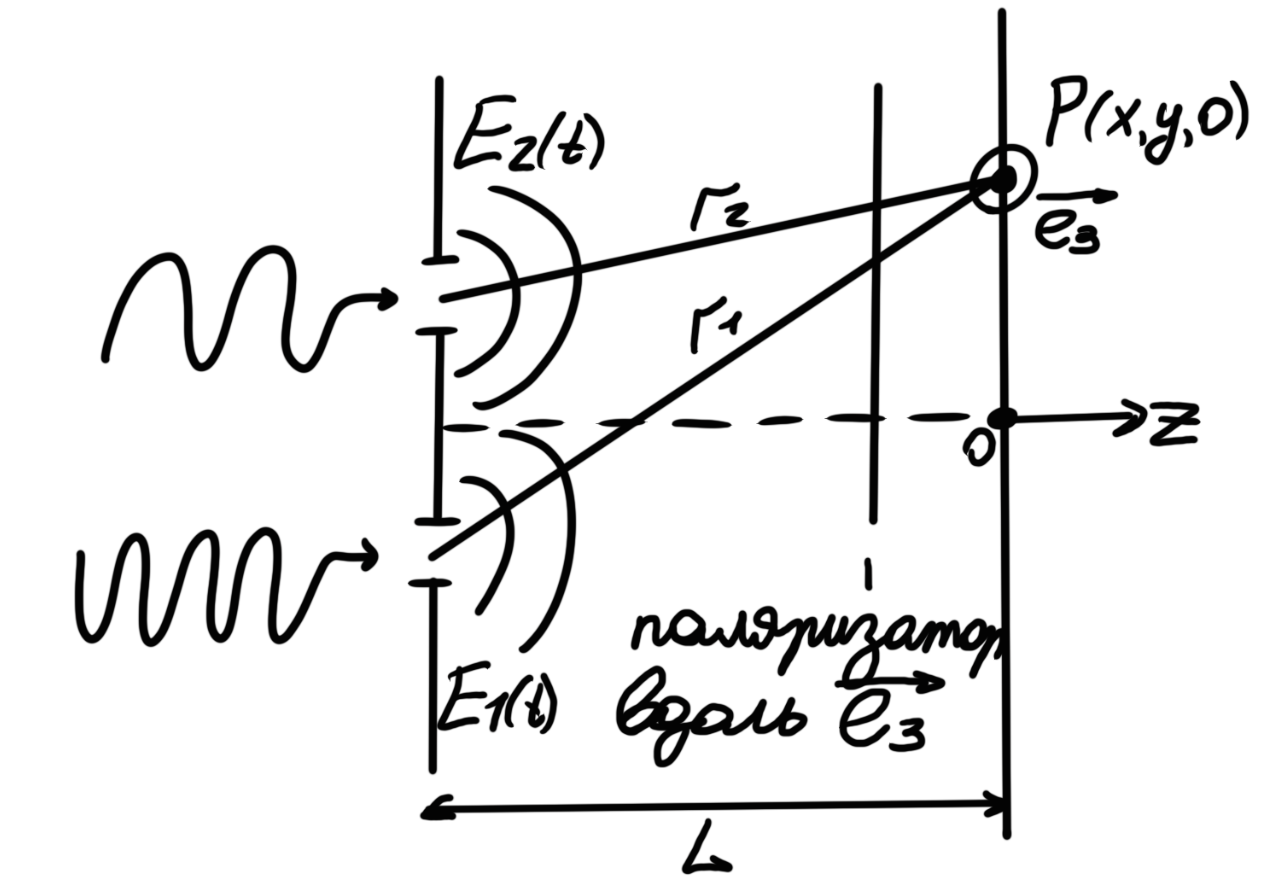 E₂(t)
P(x,y,0)
r₂
e₃
r₁
0
z
E₁(t)
поляризатор
вдоль e₃
L